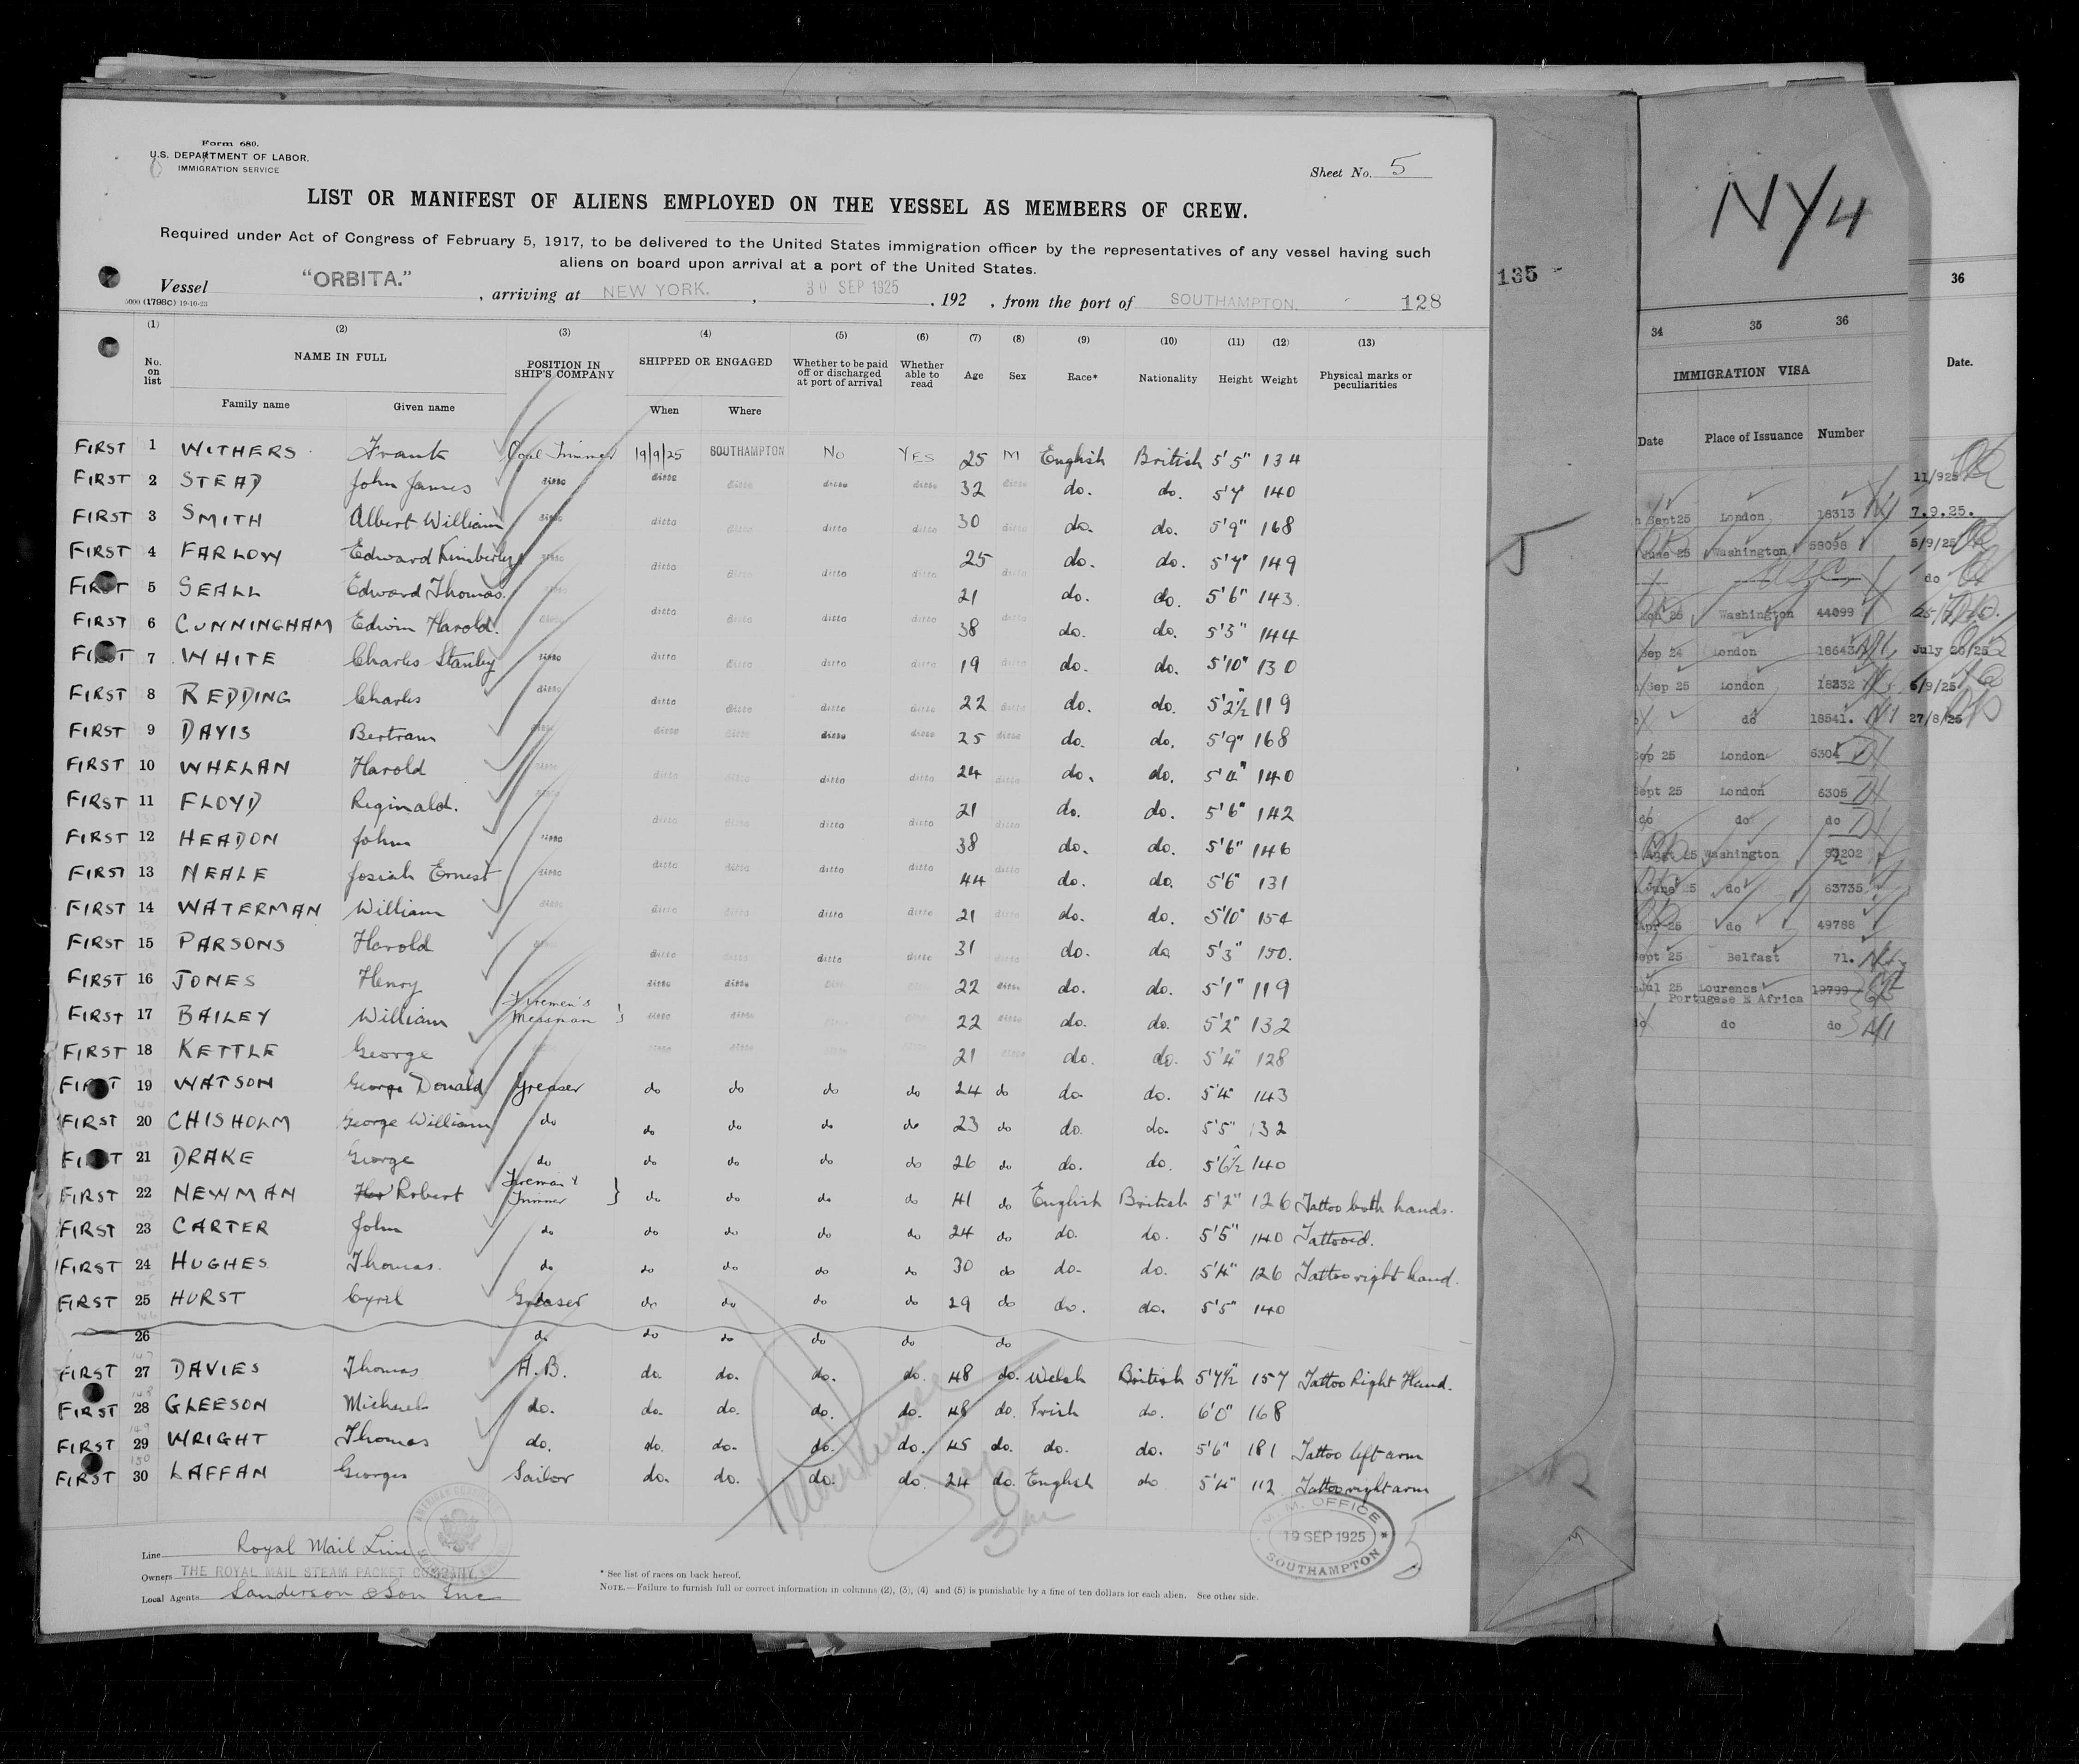 Form 680.
U.S. DEPARTMENT OF LABOR,
IMMIGRATION SERVICE
Sheet No. 5
LIST OR MANIFEST OF ALIENS EMPLOYED ON THE VESSEL AS MEMBERS OF CREW.
Required under Act of Congress of February 5, 1917, to be delivered to the United States immigration officer by the representatives of any vessel having such
aliens on board upon arrival at a port of the United States.
Vessel "ORBITA." , arriving at NEW YORK. , 30 SEP 1925 , 192 , from the port of SOUTHAMPTON. 128
5000 (1798C) 19-10-23
(1) (2) (3) (4) (5) (6) (7) (8) (9) (10) (11) (12) (13)
No. on list NAME IN FULL POSITION IN SHIP'S COMPANY SHIPPED OR ENGAGED Whether to be paid off or discharged at port of arrival Whether able to read Age Sex Race* Nationality Height Weight Physical marks or peculiarities
Family name Given name When Where
FIRST 1 WITHERS Frank Coal Trimmer 19/9/25 SOUTHAMPTON No YES 25 M English British 5'5" 134
FIRST 2 STEAD John James ditto ditto ditto ditto ditto 32 ditto do. do. 5'7" 140
FIRST 3 SMITH Albert William ditto ditto ditto ditto ditto 30 ditto do. do. 5'9" 168
FIRST 4 FARLOW Edward Kimberley ditto ditto ditto ditto ditto 25 ditto do. do. 5'7" 149
FIRST 5 SEALL Edward Thomas. 21 do. do. 5'6" 143
FIRST 6 CUNNINGHAM Edwin Harold. ditto ditto ditto ditto ditto 38 ditto do. do. 5'3" 144
FIRST 7 WHITE Charles Stanley ditto ditto ditto ditto ditto 19 ditto do. do. 5'10" 130
FIRST 8 REDDING Charles ditto ditto ditto ditto ditto 22 ditto do. do. 5'2½" 119
FIRST 9 DAVIS Bertram ditto ditto ditto ditto ditto 25 ditto do. do. 5'9" 168
FIRST 10 WHELAN Harold ditto ditto ditto ditto ditto 24 ditto do. do. 140
FIRST 11 FLOYD Reginald. ditto 21 do. do. 5'6" 142
FIRST 12 HEADON John ditto ditto ditto ditto ditto 38 ditto do. do. 5'6" 146
FIRST 13 NEALE Josiah Ernest ditto ditto ditto ditto ditto 44 ditto do. do. 5'6" 131
FIRST 14 WATERMAN William ditto ditto ditto ditto ditto 21 ditto do. do. 5'10" 154
FIRST 15 PARSONS Harold ditto ditto ditto ditto 31 ditto do. do 5'3" 150.
FIRST 16 JONES Henry ditto ditto 22 ditto do. do. 5'1" 119
FIRST 17 BAILEY William Firemen's Messman } ditto ditto 22 ditto do. do. 5'2" 132
FIRST 18 KETTLE George ditto ditto 21 ditto do. do. 5'4" 128
FIRST 19 WATSON George Donald Greaser do do do do 24 do do do. 5'4" 143
FIRST 20 CHISHOLM George William do do do do do 23 do do. do. 5'5" 132
FIRST 21 DRAKE George do do do do do 26 do do. do. 5'6½" 140
FIRST 22 NEWMAN Robert Fireman & Trimmer } do do do do 41 do English British 5'2" 126 Tattoo both hands.
FIRST 23 CARTER John do do do do do 24 do do. do. 5'5" 140 Tattooed.
FIRST 24 HUGHES Thomas. do do do do do 30 do do. do. 5'4" 126 Tattoo right hand.
FIRST 25 HURST Cyril Greaser do do do do 29 do do. do. 5'5" 140
26 do do do do do do
FIRST 27 DAVIES Thomas A.B. do. do. do. do. 48 do. Welsh British 5'7½" 157 Tattoo Right Hand.
FIRST 28 GLEESON Michael do. do. do. do. do. 48 do. Irish do. 6'0" 168
FIRST 29 WRIGHT Thomas do. do. do. do. do. 45 do. do. do. 5'6" 181 Tattoo left arm
FIRST 30 LAFFAN Georges Sailor do. do. do. do. 24 do. English do 5'4" 112 Tattoo right arm
Line Royal Mail Line
Owners THE ROYAL MAIL STEAM PACKET COMPANY.
Local Agents Sanderson & Son Inc
* See list of races on back hereof.
NOTE.—Failure to furnish full or correct information in columns (2), (3), (4) and (5) is punishable by a fine of ten dollars for each alien. See other side.
M.M. OFFICE
19 SEP 1925
SOUTHAMPTON
5
135
NY4
34 35 36
IMMIGRATION VISA
Date Place of Issuance Number
Sept25 London 18313
June 25 Washington 58098
25 Washington 44099
Sep 24 London 18643
Sep 25 London 18232
do 18541.
Sep 25 London 6304
Sept 25 London 6305
do do do
25 Washington
June 25 do 63735
Apr 25 do 49788
Sept 25 Belfast 71.
Jul 25 Lourencs 19799
Portugese E Africa
do do do
36
Date.
11/925
7.9.25.
5/9/25
do
July 26/25
6/9/25
27/8/25